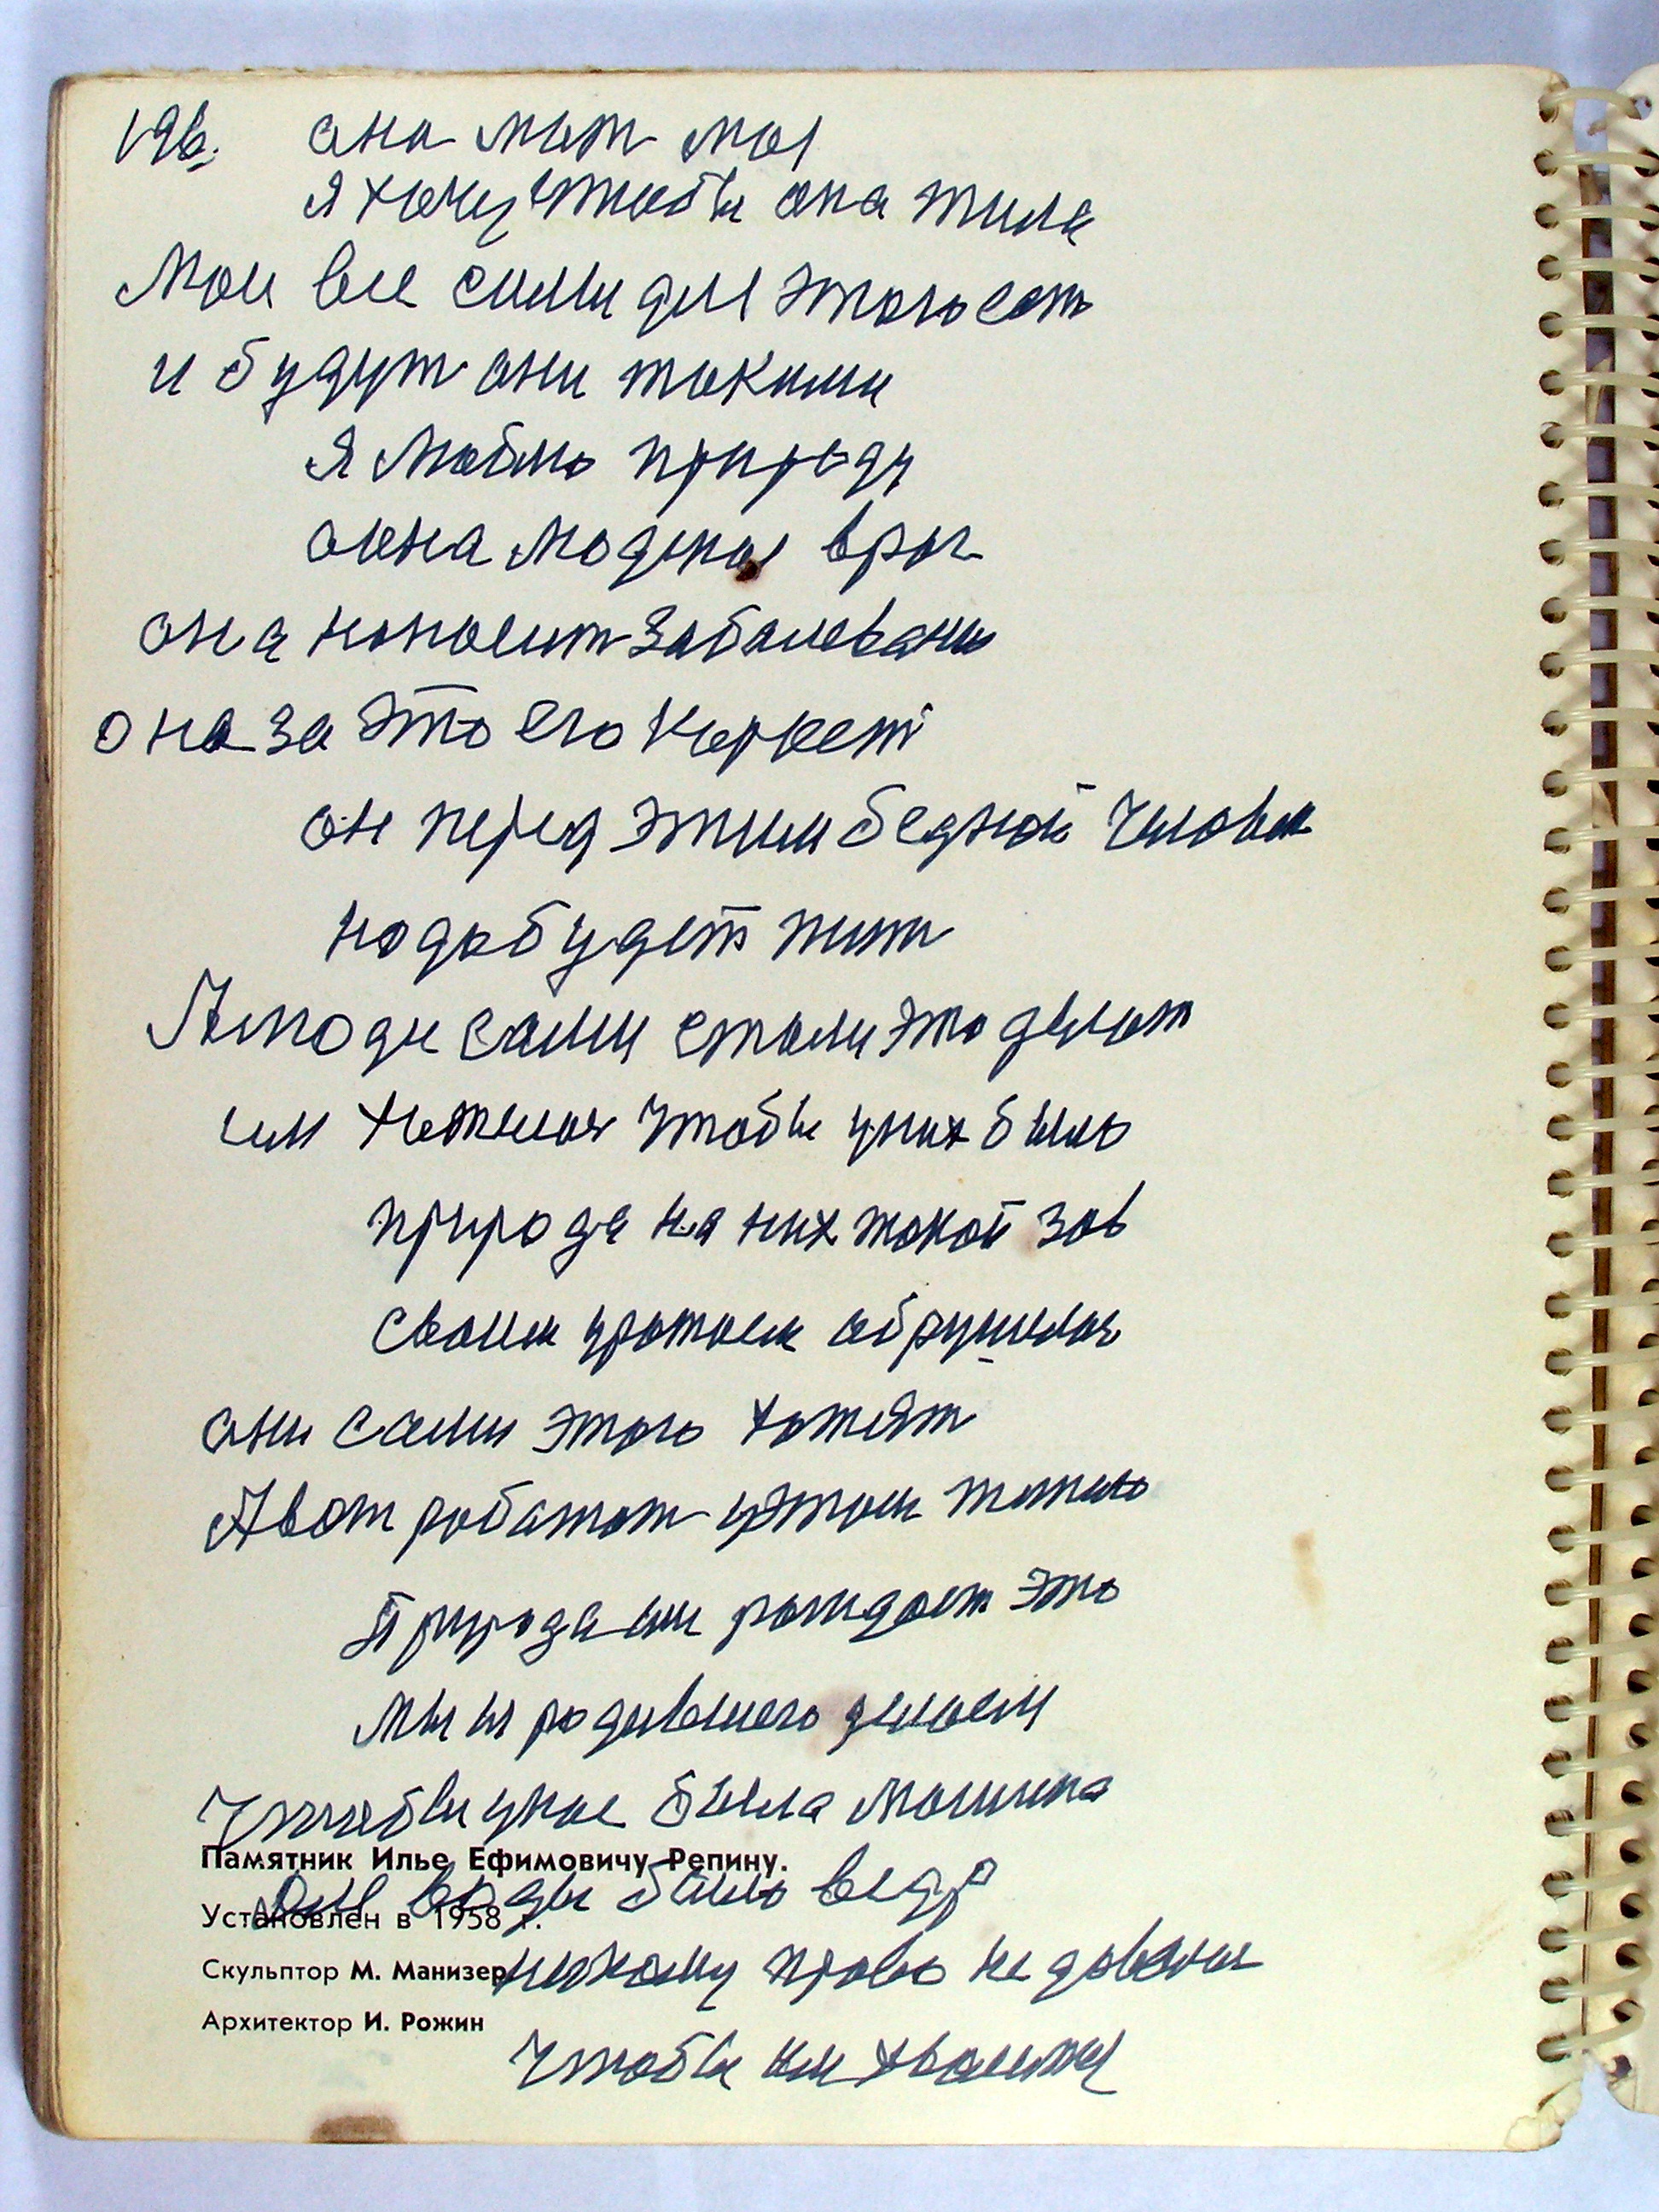 196. она мать моя
я хочу чтобы она жила
Мои все силы для этого есть
и будут они такими
Я люблю природу
она людям враг
она наносит заболевание
она за это его карает
он перед этим бедной человек
надо будет жить
А люди сами стали это делать
им хотелось чтобы у них было
природа на них такой зов
своим уроном обрушилась
они сами этого хотят
А вот работают у этом только
природа им рождает это
мы и родившего делаем
Чтобы у нас была машина
Памятник Илье Ефимовичу Репину.
для воды было ведро
Установлен в 1958 г.
Скульптор М. Манизер
никому право не давали
Архитектор И. Рожин
Чтобы им хвалиться